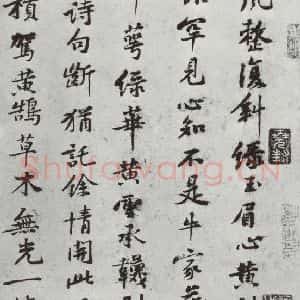 整復斜綠玉眉心黃
罕見心知不是牛家
萼綠華黃雲承韈
詩句斷猶託餘情開此
駕黃鵠草木無光一
Shufawang.CN